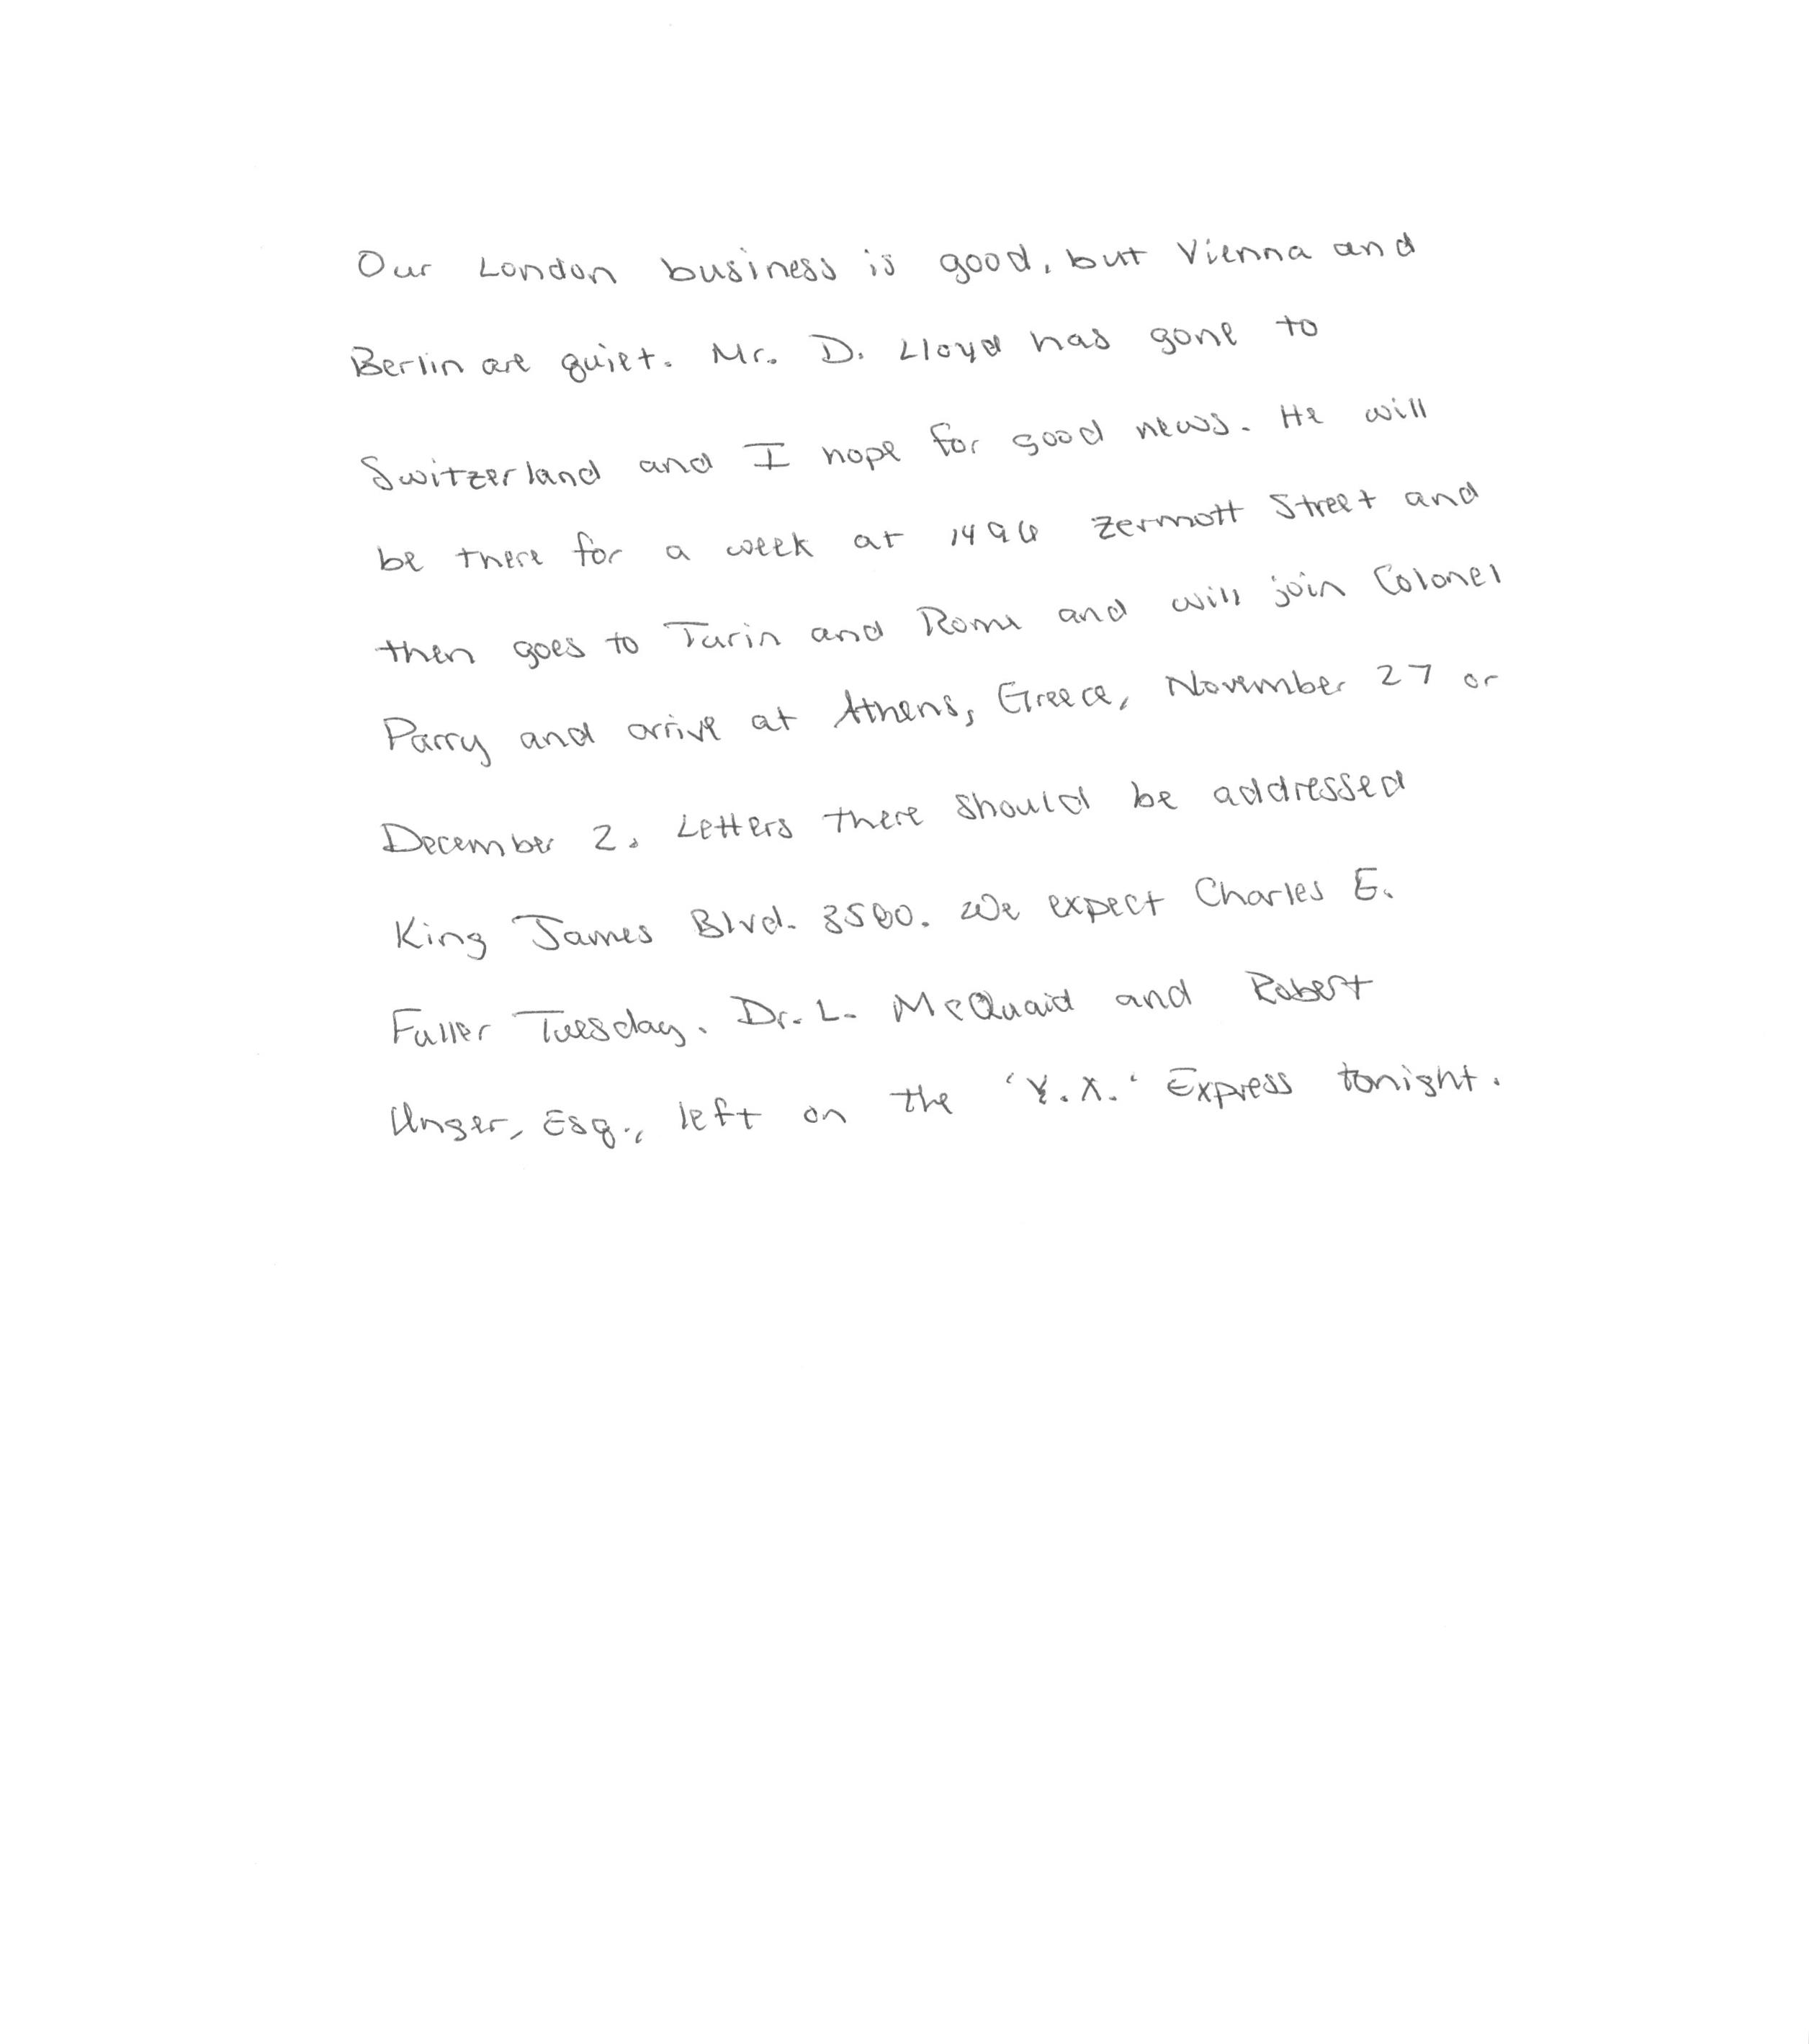 Our London business is good, but Vienna and
Berlin are quiet. Mr. D. Lloyd has gone to
Switzerland and I hope for good news. He will
be there for a week at 1496 Zermott Street and
then goes to Turin and Rome and will join Colonel
Parry and arrive at Athens, Greece, November 27 or
December 2. Letters there should be addressed
King James Blvd. 3580. We expect Charles E.
Fuller Tuesday. Dr. L. McQuaid and Robert
Unger, Esq., left on the 'Y.X.' Express tonight.